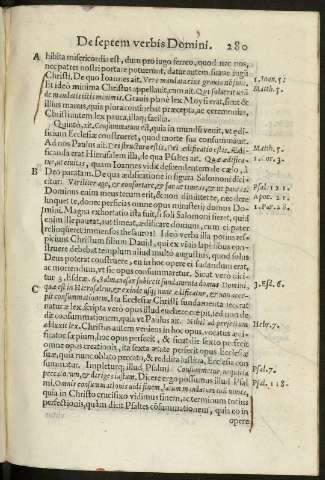 De septem verbis Domini. 280
A hibita misericordia est, dum pro iugo ferreo, quod nec nos,
nec patres nostri portare potuerunt, datur autem suaue iugũ
Christi. De quo Ioannes ait. Et mandata eius grauia non sunt. 1. Ioan. 5.
Et ideo minima Christus appellauit, cum ait. Qui soluerit vnũ Matth. 5.
de mandatis istis minimis. Grauis planè lex Moysi erat, sicut &
illius manus, quia plura continebat præcepta, ac ceremonias,
Christi autem lex pauca, illaq; facilia.
Quinto, ait. Consummatum est, quia in mundũ venit, vt ędi-
ficaturus Ecclesiæ construeret, quod morte sua consummat.
Ad nos Paulus ait. Dei structura estis, Dei ædificatio estis, ædifi- Matth. 5.
ficanda erat Hierusalem illa, de qua Psaltes ait. Quæ ædifica- 1. Cor. 3.
tur, vt ciuitas, quam Ioannes vidit descendentem de cælo, à
B Deo paratam. De qua ædificatione in figura Salomoni dici- Psal. 121.
citur. Viriliter age, & confortare, & fac: ne timeas, & ne paueas. Apoc. 21.
Dominus enim meus tecum erit, & non dimittet te, nec dere 1. Par. 28.
linquet te, donec perficias omne opus ministerij domus Do-
mini. Magna exhortatio ista fuit, si soli Salomoni fieret, quid
enim ille paueat, aut timeat, ædificare domum, cum ei pater
reliquisset immensos thesauros? Ideo verba illa potius res-
piciunt Christum filium Dauid, qui ex viuis lapidibus con-
struere debebat templum illud multo augustius, quod solus
Deus poterat construere, en in hoc opere ei sudandum erat,
ac moriendum, vt sic opus consummaretur. Sicut vero dici-
tur 3. Esdræ. 6. Salmanasar subiecit fundamenta domus Domini, 3. Esd. 6.
C quæ est in Hierusalem, & exinde vsq; nunc ædificatur, & non acce-
pit consummationem, Ita Ecclesiæ Christi fundamenta iecerat
naturæ lex scripta vero opus illud euehere cœpit, sed non de
dit consummationem, quia ve Paulus ait. Nihil ad perfectum Hebr. 7.
adduxit lex. Christus autem veniens in hoc opus, vocatus ædi-
ficator sæpium, hoc opus perfecit, & sicut die sexto perfecit
omne opus creationis, ita sexta ætate perfecit opus Ecclesiæ
suæ, quia nunc oblato peccato, & reddita iustitia, Ecclesia con
summatur. Impletur q; illud Psalmi. Consummetur, nequitia Psal. 7.
peccatorum, & diriges iustum. Dicere ergo possumus illud Psal
mi. Omnis consummationis vidi finem, latum mandatum tuũ nimis, Psal. 118.
quia in Christo crucifixo vidimus finem, ac terminum totius
perfectionis, quàm dicit Psaltes cõsummationem, quia eo in
opere